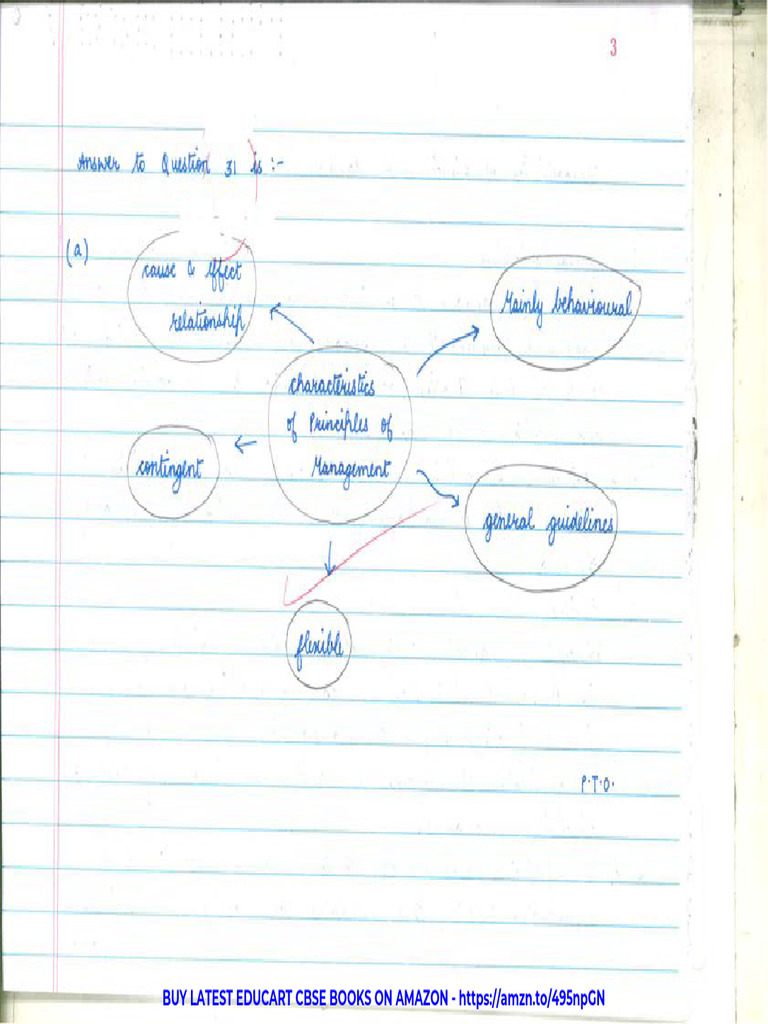 3
Answer to Question 31 is :-
(a)
cause & effect
relationship
Mainly behavioural
characteristics
of Principles of
Management
contingent
general guidelines
flexible
P.T.O.
BUY LATEST EDUCART CBSE BOOKS ON AMAZON - https://amzn.to/495npGN